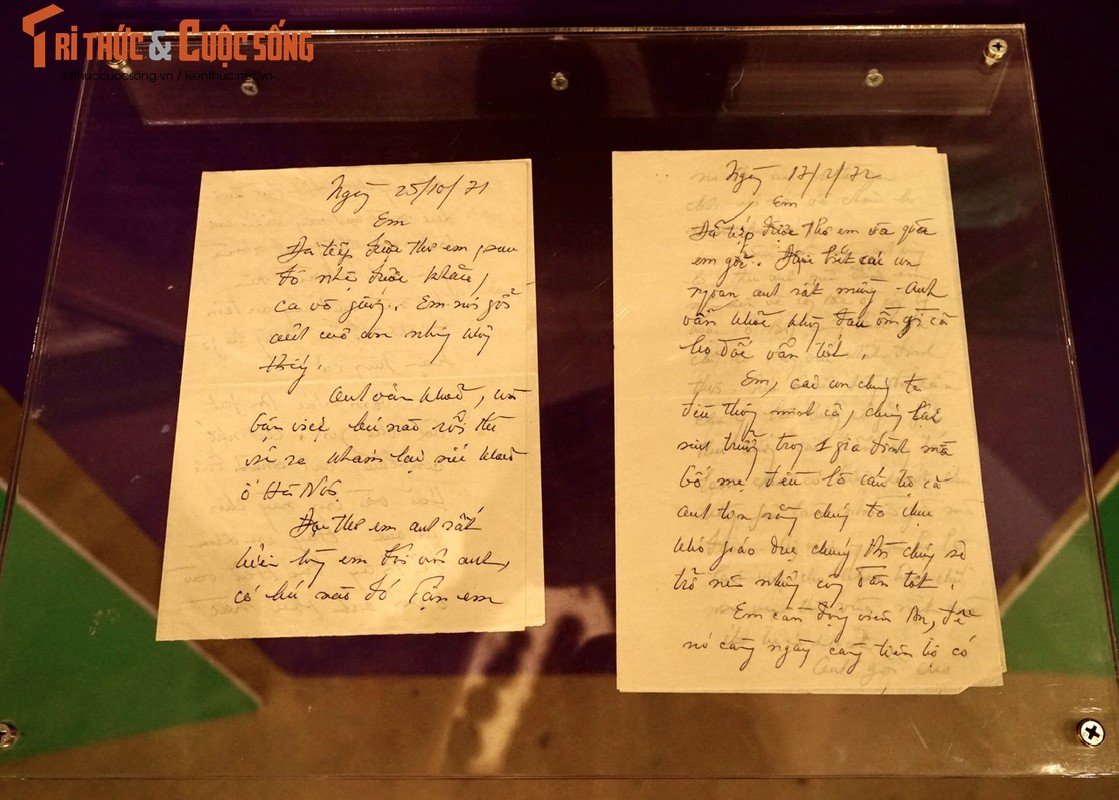 TRI THỨC & CUỘC SỐNG
trithuccuocsong.vn / kienthuc.net.vn
Ngày 25/10/71
Em
Đã tiếp được thơ em, sau
đó nhận được khăn,
ca vô giường. Em nói gởi
anh
thấy.
Anh vẫn khoẻ,
bận việc khi nào rồi thì
sẽ ra khám lại sức khoẻ
ở Hà Nội.
Đọc thơ em anh rất
hiểu lòng em đối với anh,
có khi nào đó em
Ngày 17/2/72
Em
Đã tiếp được thơ em và quà
em gởi. Được biết các con
ngoan anh rất mừng - Anh
vẫn khoẻ không đau ốm gì cả
vẫn tốt.
Em, các con chúng ta
đều thông minh cả, chúng lại
sinh trưởng trong 1 gia đình mà
bố mẹ đều là cán bộ cả
anh tin rằng chúng ta chịu
khó giáo dục chúng thì chúng sẽ
trở nên những công dân tốt.
Em cần động viên An, để
nó càng ngày càng tiến bộ có